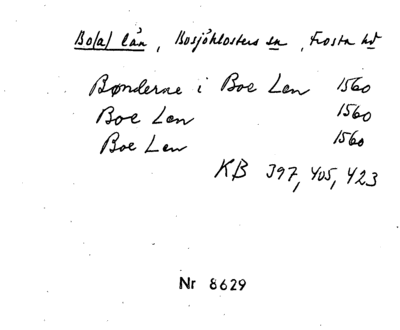 Bo(a) län, Bosjöklosters sn, Frosta hd
Bønderne i Boe Len 1560
Boe Len 1560
Boe Len 1560
KB 397, 405, 423
Nr 8629